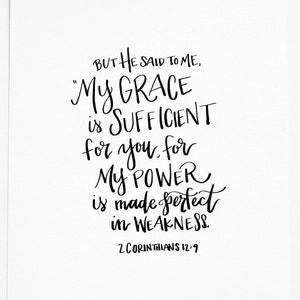 BUT HE SAID TO ME,
"MY GRACE
is SUFFICIENT
for you, for
MY POWER
is made perfect
in WEAKNESS.
2 CORINTHIANS 12:9